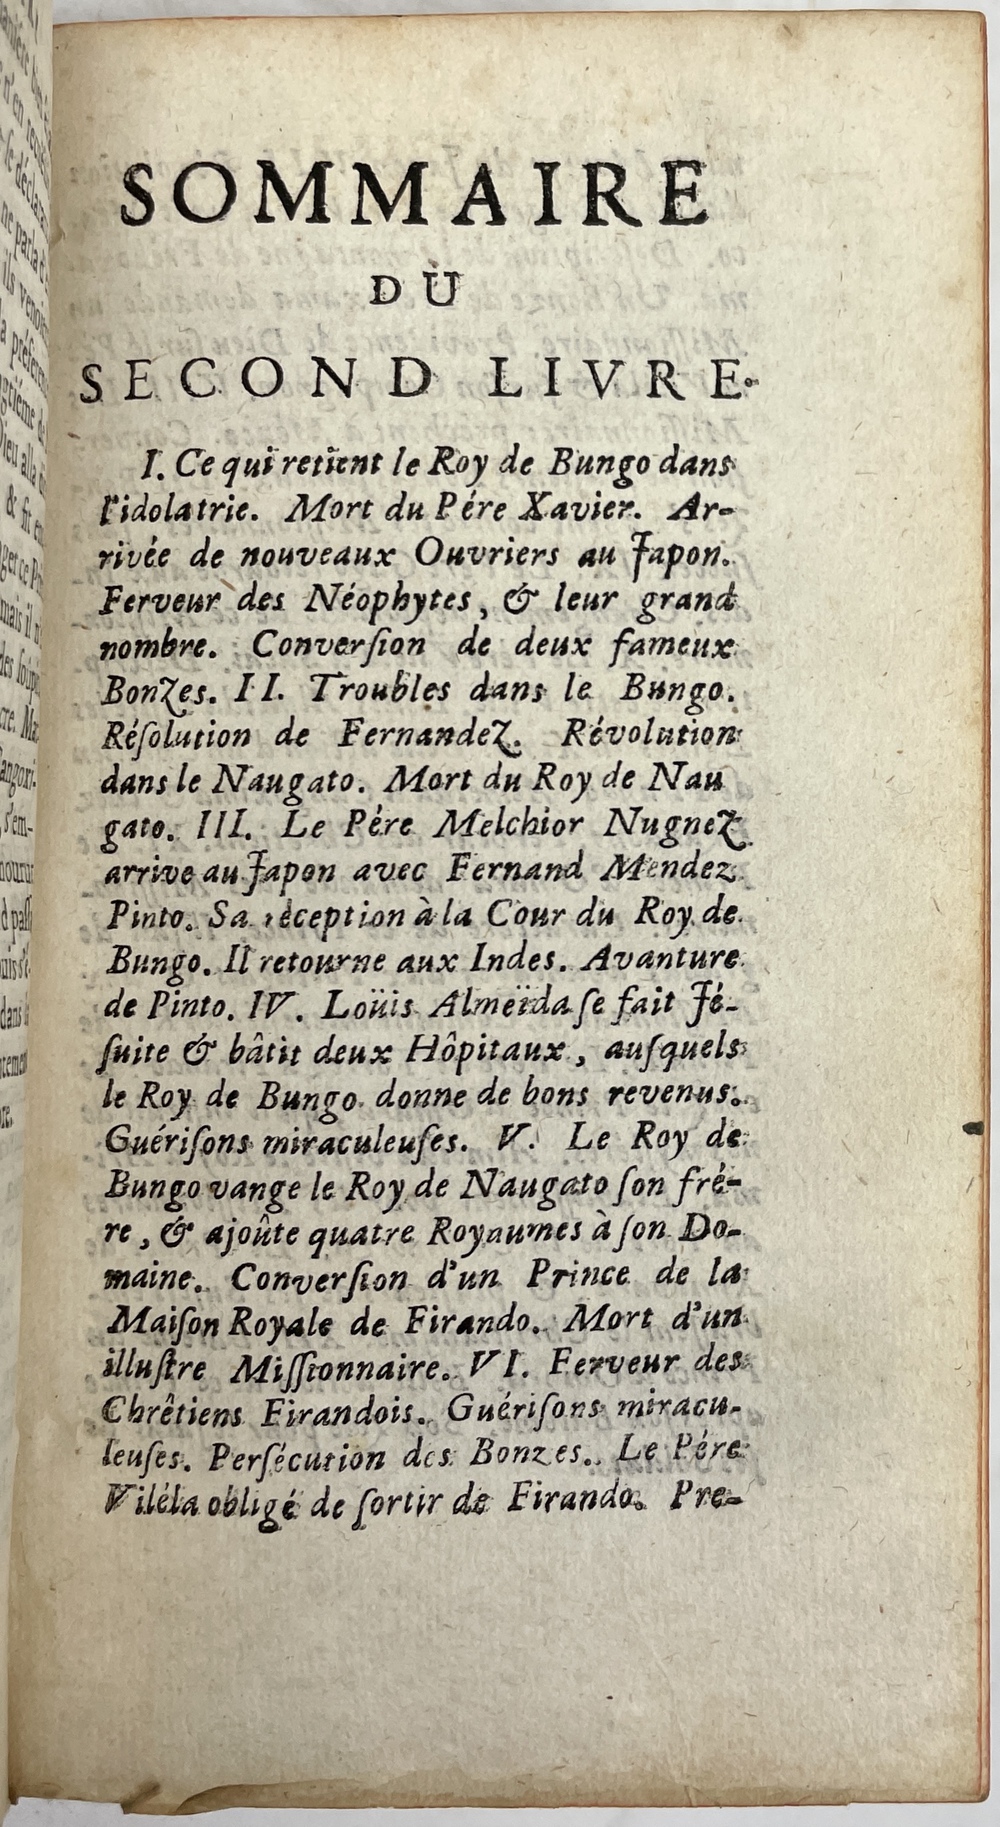 SOMMAIRE
DU
SECOND LIVRE.
I. Ce qui retient le Roy de Bungo dans
l'idolatrie. Mort du Pére Xavier. Ar-
rivée de nouveaux Ouvriers au Japon.
Ferveur des Néophytes, & leur grand
nombre. Converſion de deux fameux
Bonzes. II. Troubles dans le Bungo.
Réſolution de Fernandez. Révolution
dans le Naugato. Mort du Roy de Nau
gato. III. Le Pére Melchior Nugnez
arrive au Japon avec Fernand Mendez
Pinto. Sa réception à la Cour du Roy de
Bungo. Il retourne aux Indes. Avanture
de Pinto. IV. Loüis Almeïda ſe fait Jé-
ſuite & bâtit deux Hôpitaux, auſquels
le Roy de Bungo donne de bons revenus.
Guériſons miraculeuſes. V. Le Roy de
Bungo vange le Roy de Naugato ſon fré-
re, & ajoûte quatre Royaumes à ſon Do-
maine. Converſion d'un Prince de la
Maiſon Royale de Firando. Mort d'un
illuſtre Miſſionnaire. VI. Ferveur des
Chrêtiens Firandois. Guériſons miracu-
leuſes. Perſécution des Bonzes. Le Pére
Viléla obligé de ſortir de Firando. Pre-